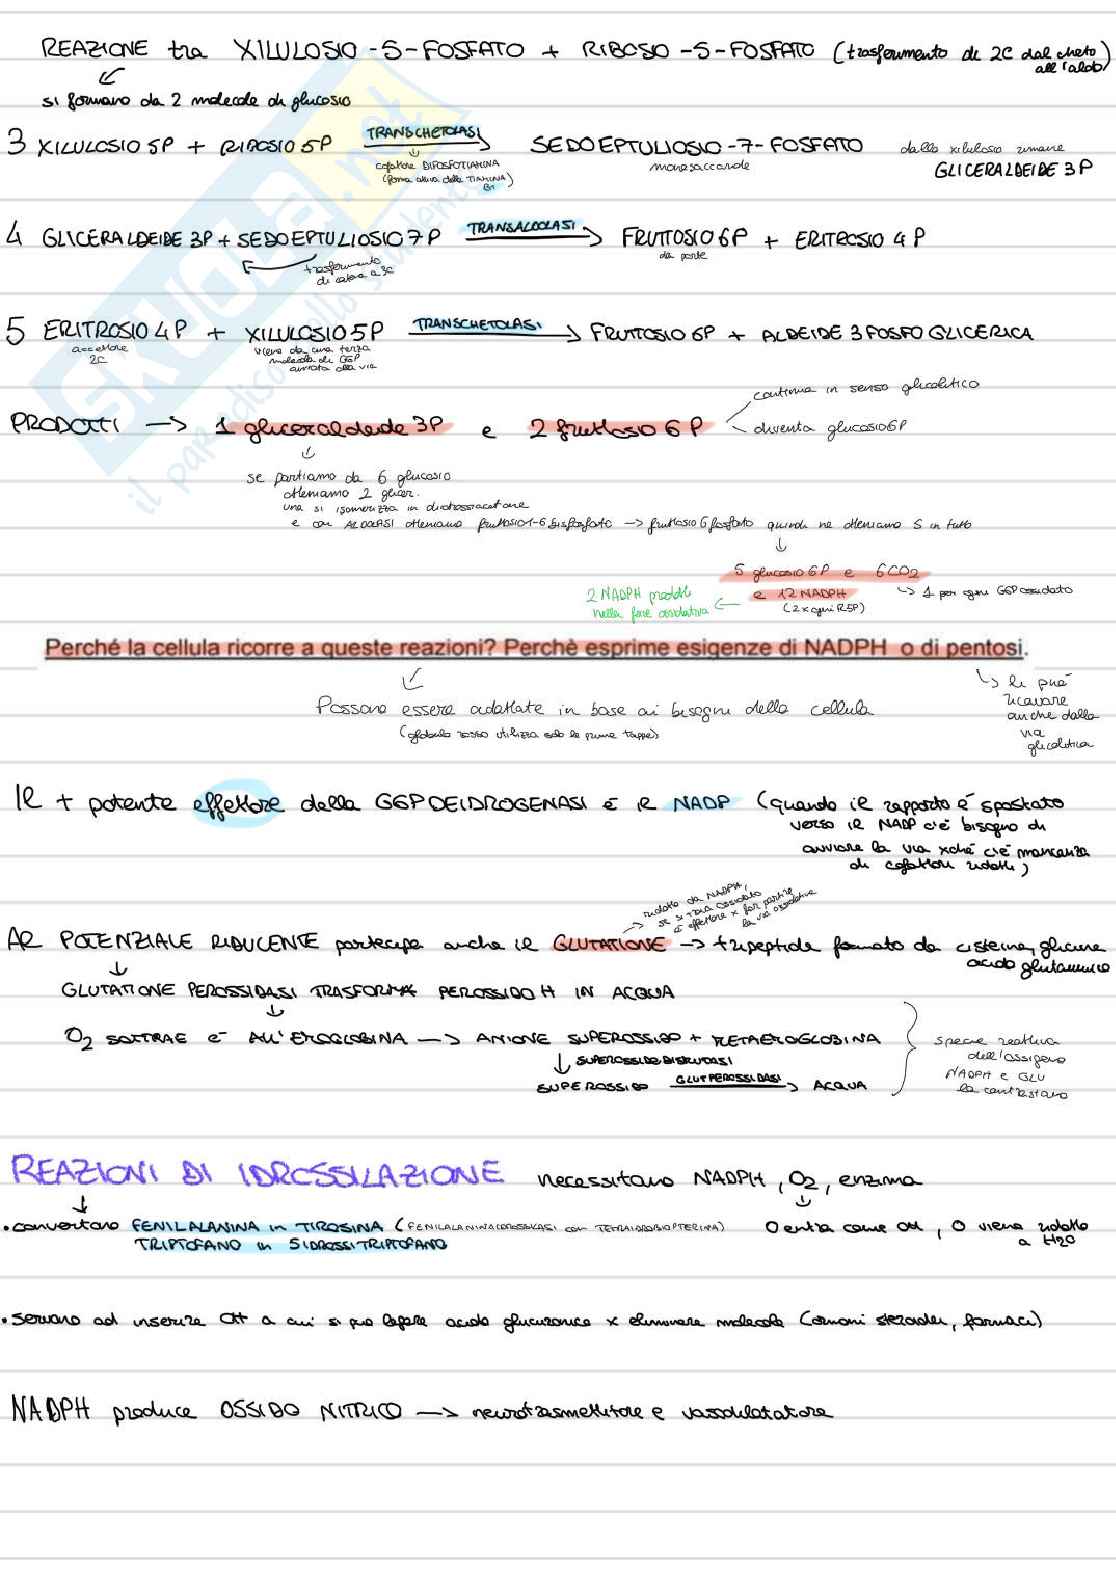 REAZIONE tra XILULOSIO-5-FOSFATO + RIBOSIO-5-FOSFATO (trasferimento di 2C dal cheto
all'aldo)
si formano da 2 molecole di glucosio
3 XILULOSIO 5P + RIBOSIO 5P TRANSCHETOLASI SEDOEPTULIOSIO-7-FOSFATO dallo xilulosio rimane
cofattore DIFOSFOTIAMINA monosaccaride GLICERALDEIDE 3P
(forma attiva della TIAMINA
B1)
4 GLICERALDEIDE 3P + SEDOEPTULIOSIO 7P TRANSALDOLASI FRUTTOSIO 6P + ERITROSIO 4P
trasferimento da parte
di catena a 3C
5 ERITROSIO 4P + XILULOSIO 5P TRANSCHETOLASI FRUTTOSIO 6P + ALDEIDE 3 FOSFO GLICERICA
accettore viene da una terza
2C molecola di G6P
avviata alla via
continua in senso glicolitico
PRODOTTI → 1 gliceraldeide 3P e 2 fruttosio 6P
diventa glucosio 6P
se partiamo da 6 glucosio
otteniamo 2 glicer.
una si isomerizza in diidrossiacetone
e con ALDOLASI otteniamo fruttosio 1-6 bisfosfato → fruttosio 6 fosfato quindi ne otteniamo 5 in tutto
5 glucosio 6P e 6CO2
2 NADPH prodotti e 12 NADPH 1 per ogni G6P ossidato
nella fase ossidativa (2 x ogni R5P)
Perché la cellula ricorre a queste reazioni? Perchè esprime esigenze di NADPH o di pentosi.
li può
Possono essere adattate in base ai bisogni della cellula ricavare
anche dalla
(globulo rosso utilizza solo le prime tappe) via
glicolitica
Il + potente effettore della G6P DEIDROGENASI è il NADP (quando il rapporto è spostato
verso il NADP c'è bisogno di
avviare la via xché c'è mancanza
di cofattori ridotti)
ridotto da NADPH,
se si trova ossidato
è effettore x far partire
la via ossidativa
AL POTENZIALE RIDUCENTE partecipa anche il GLUTATIONE → tripeptide formato da cisteina, glicina
acido glutammico
GLUTATIONE PEROSSIDASI TRASFORMA PEROSSIDO H IN ACQUA
O2 SOTTRAE e- ALL'EMOGLOBINA → ANIONE SUPEROSSIDO + METAEMOGLOBINA
SUPEROSSIDO DISMUTASI
SUPEROSSIDO GLUT PEROSSIDASI → ACQUA
specie reattiva
dell'ossigeno
NADPH e GLU
la contrastano
REAZIONI DI IDROSSILAZIONE necessitano NADPH, O2, enzima
• convertono FENILALANINA in TIROSINA (FENILALANINA IDROSSILASI con TETRAIDROBIOPTERINA) O entra come OH, O viene ridotto
TRIPTOFANO in 5IDROSSITRIPTOFANO a H2O
• servono ad inserire OH a cui si può legare acido glucuronico x eliminare molecole (ormoni steroidei, farmaci)
NADPH produce OSSIDO NITRICO → neurotrasmettitore e vasodilatatore
skuola.net
il paradiso dello studente